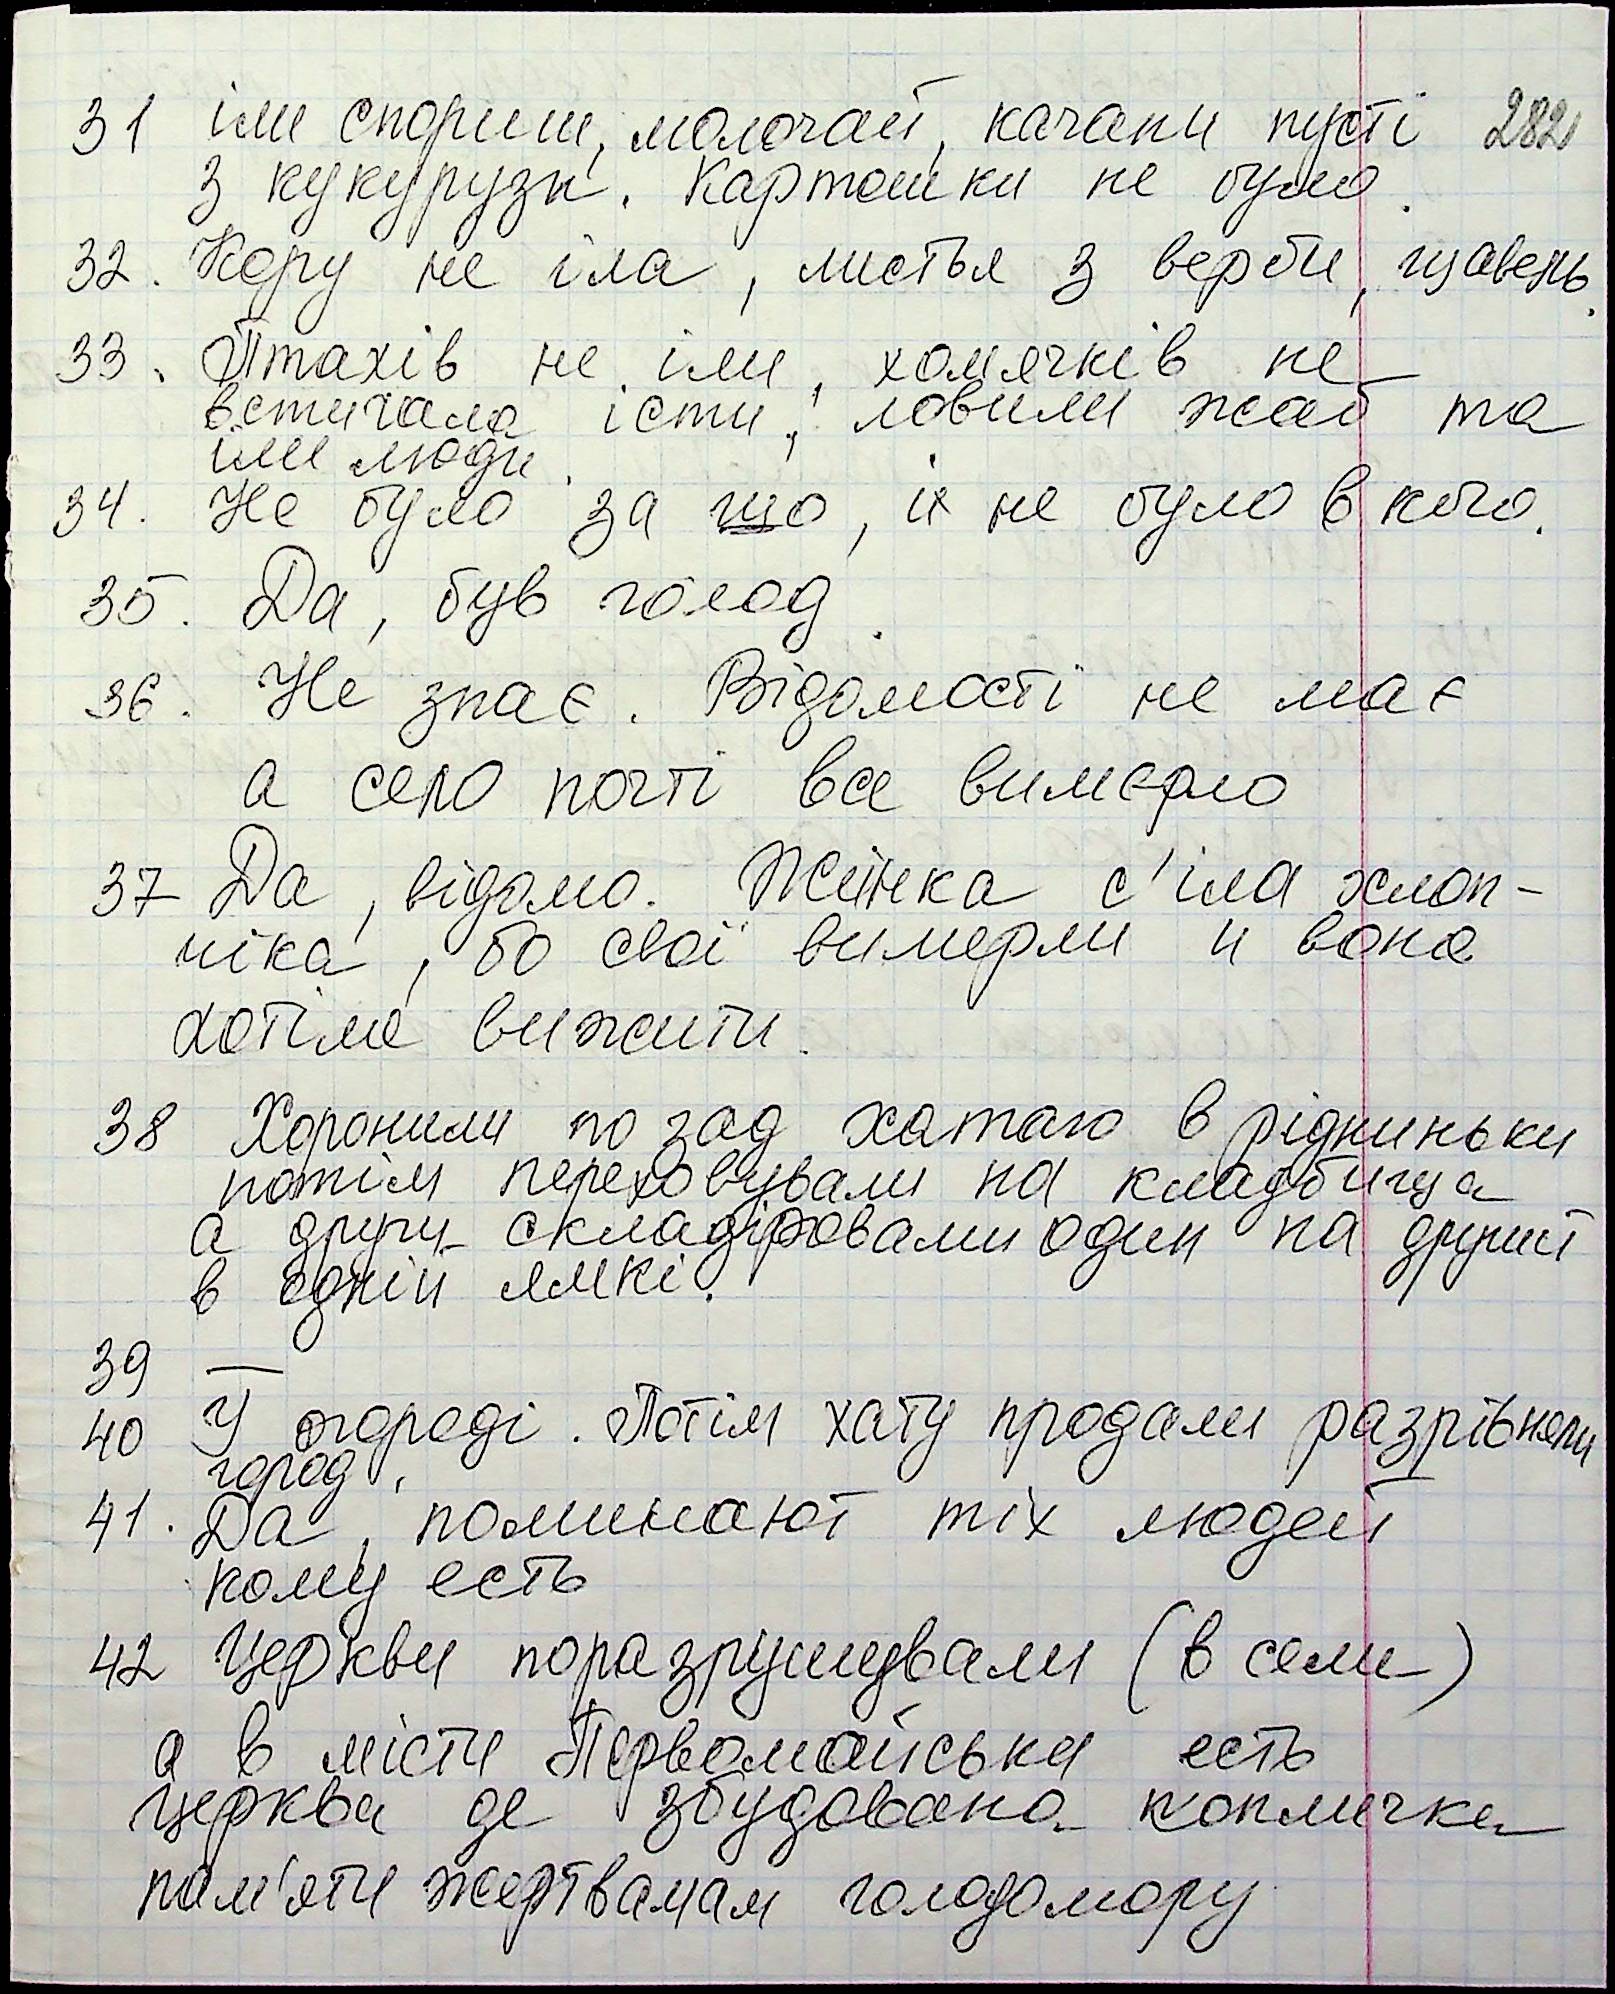 31 їли спориш, молочай, качани пусті 282
з кукурузи. Картошки не було.
32. Кору не їла, листья з верби, щавень.
33. Птахів не їли, хомячків не
встичало їсти, ловили жаб та
їли люди.
34. Не було за що, їх не було в кого.
35. Да, був голод.
36. Не знає. Відомості не має
а село почті все вимерло
37 Да, відомо. Жінка с'їла хлоп-
чіка, бо свої вимерли и вона
хотіла вижити.
38 Хоронили по зад хатаю в рідниньки
потім переховували на кладбища
а други складіровали один на другий
в одній ямкі.
39 —
40 У огороді. Потім хату продали разрівняли
город.
41. Да, поминают тіх людей
кому есть
42 Церкви поразрушували (в сели)
а в місти Первомайськи есть
церква де збудована капличка
пам'яти жертвамам голодомору